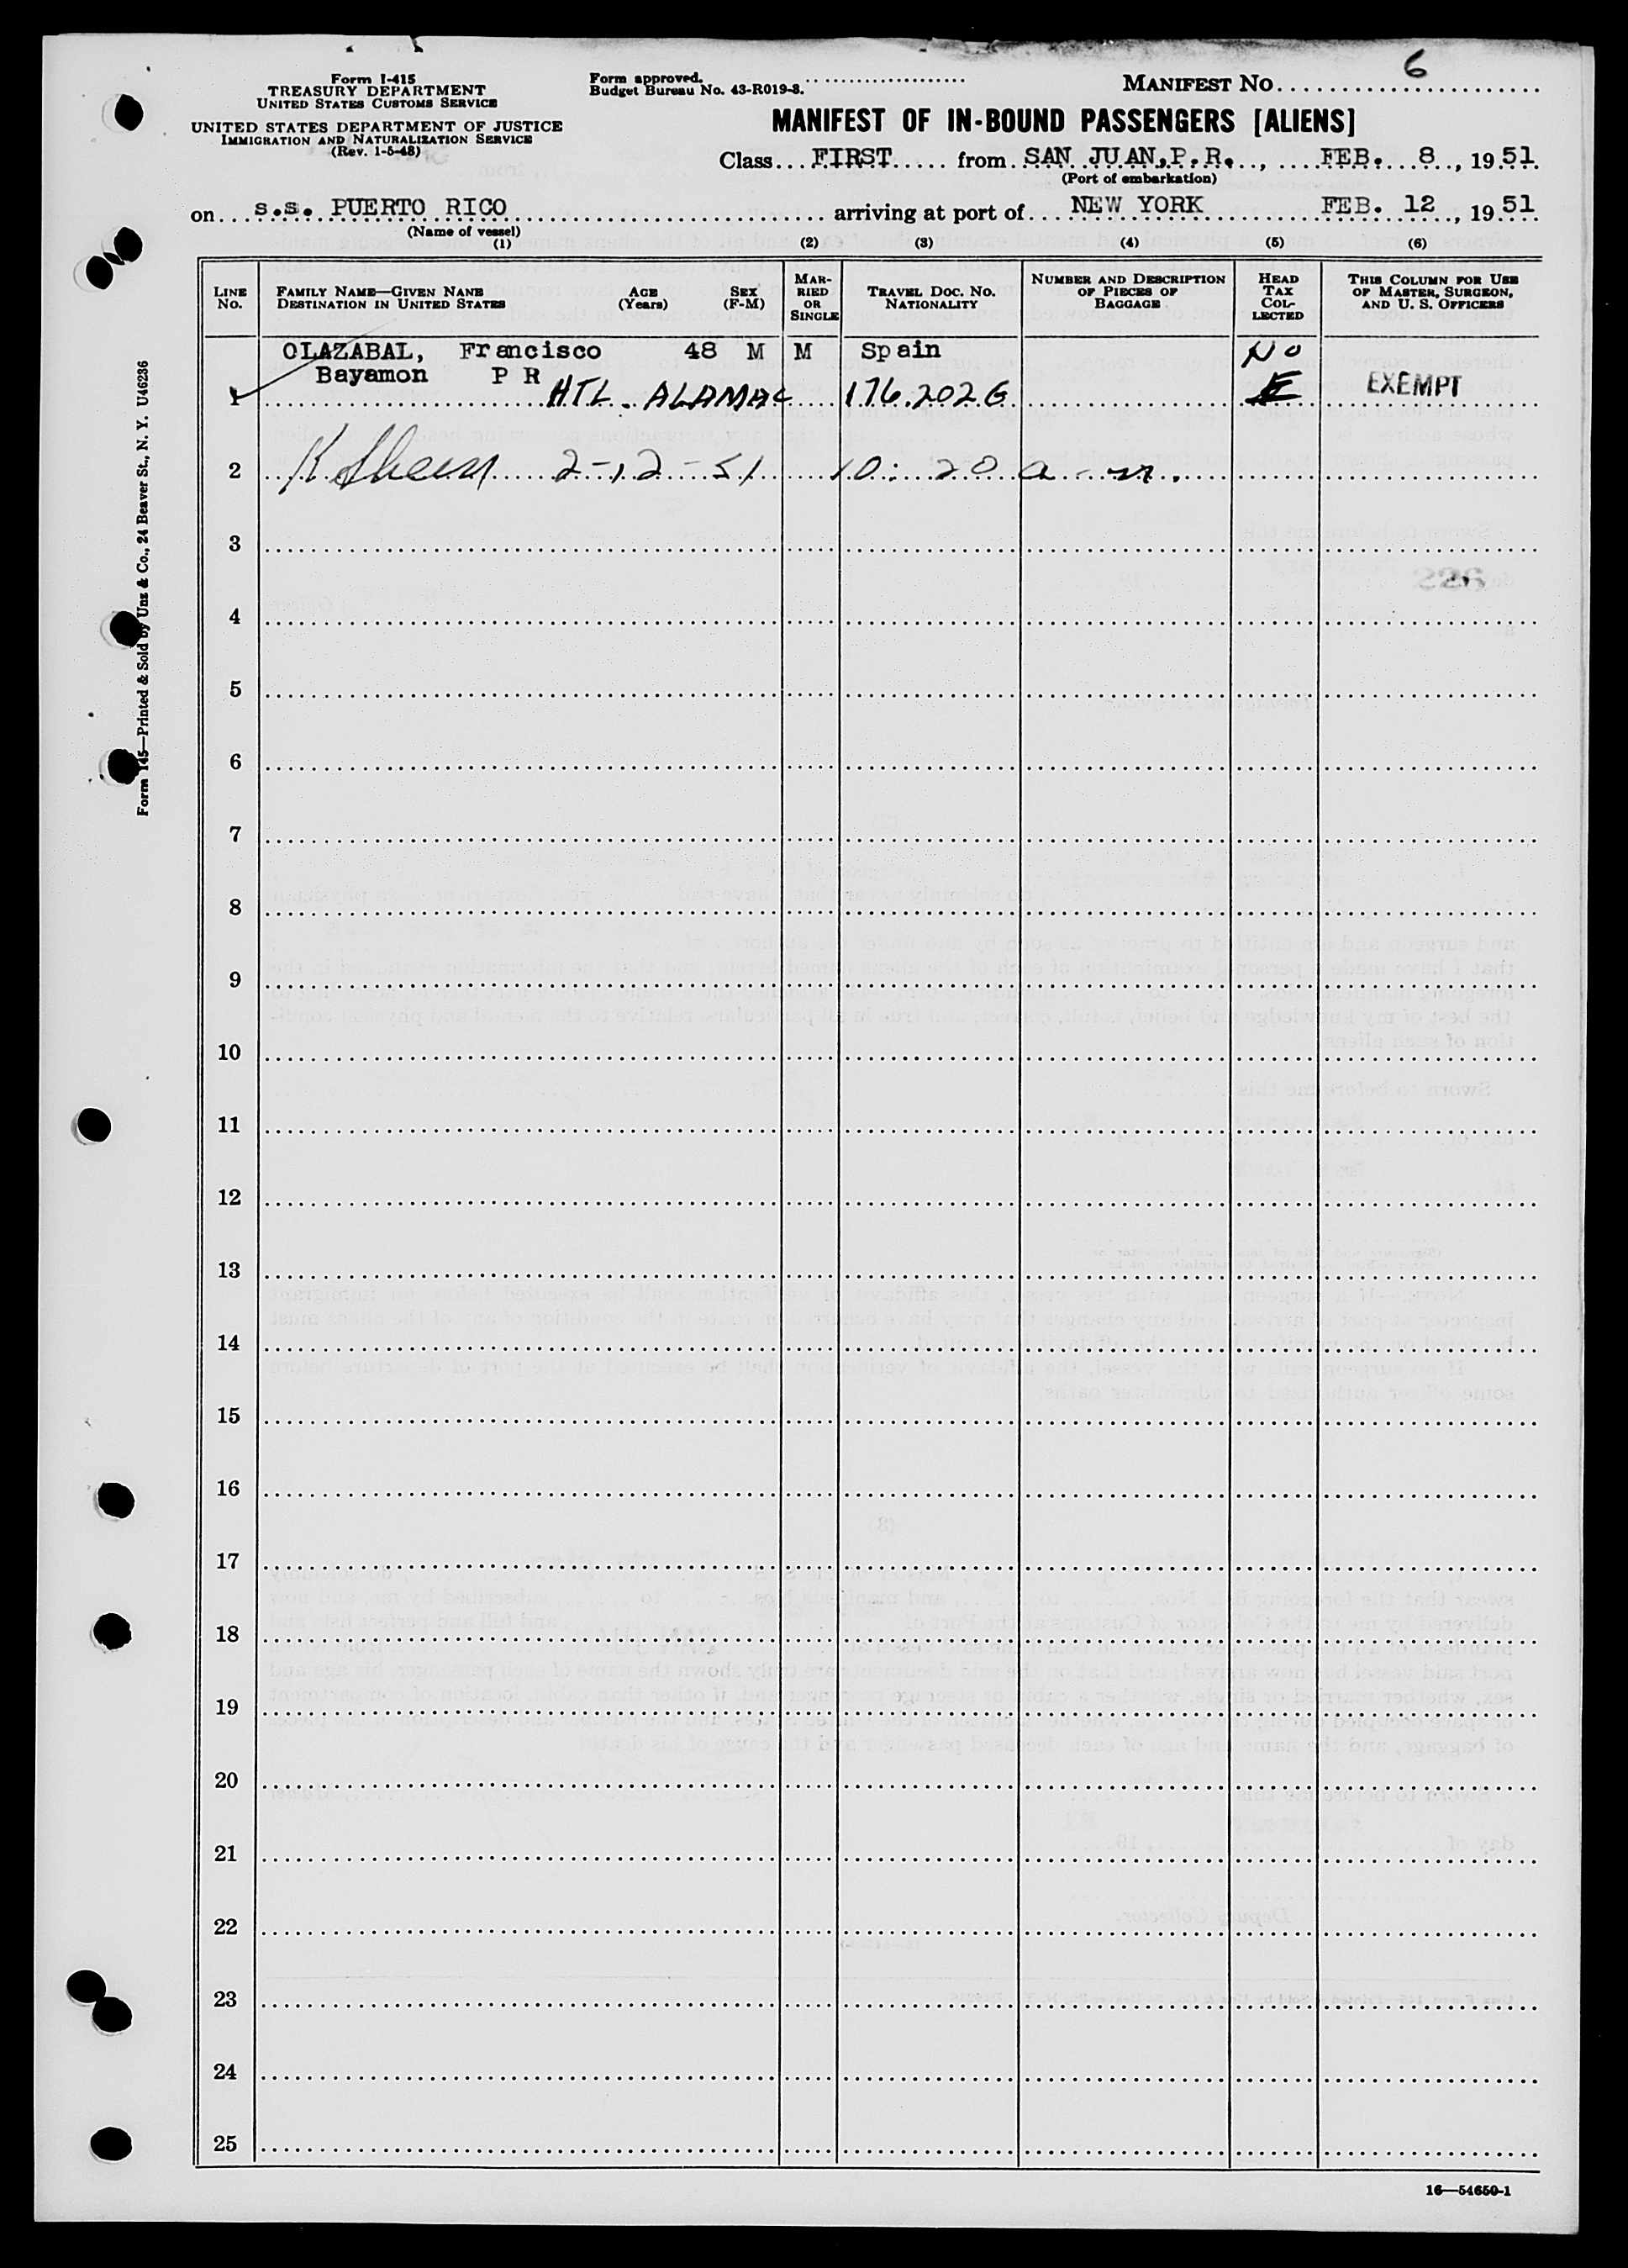 Form I-415
TREASURY DEPARTMENT
UNITED STATES CUSTOMS SERVICE
UNITED STATES DEPARTMENT OF JUSTICE
IMMIGRATION AND NATURALIZATION SERVICE
(Rev. 1-5-48)
Form approved.
Budget Bureau No. 43-R019-3.
MANIFEST NO. 6
MANIFEST OF IN-BOUND PASSENGERS [ALIENS]
Class FIRST from SAN JUAN, P. R., FEB. 8, 1951
(Port of embarkation)
on s.s. PUERTO RICO arriving at port of NEW YORK FEB. 12, 1951
(Name of vessel)
(1) (2) (3) (4) (5) (6)
LINE NO.
FAMILY NAME—GIVEN NAME
DESTINATION IN UNITED STATES
AGE (Years)
SEX (F-M)
MARRIED OR SINGLE
TRAVEL DOC. NO. NATIONALITY
NUMBER AND DESCRIPTION OF PIECES OF BAGGAGE
HEAD TAX COLLECTED
THIS COLUMN FOR USE OF MASTER, SURGEON, AND U. S. OFFICERS
OLAZABAL, Francisco 48 M M Spain No
Bayamon P R
1 HTL. ALAMAC 176.2026 E EXEMPT
2 2-12-51 10:20 a.m.
3
4
5
6
7
8
9
10
11
12
13
14
15
16
17
18
19
20
21
22
23
24
25
16—54650-1
Form 145—Printed & Sold by Unz & Co., 24 Beaver St., N. Y. U46236